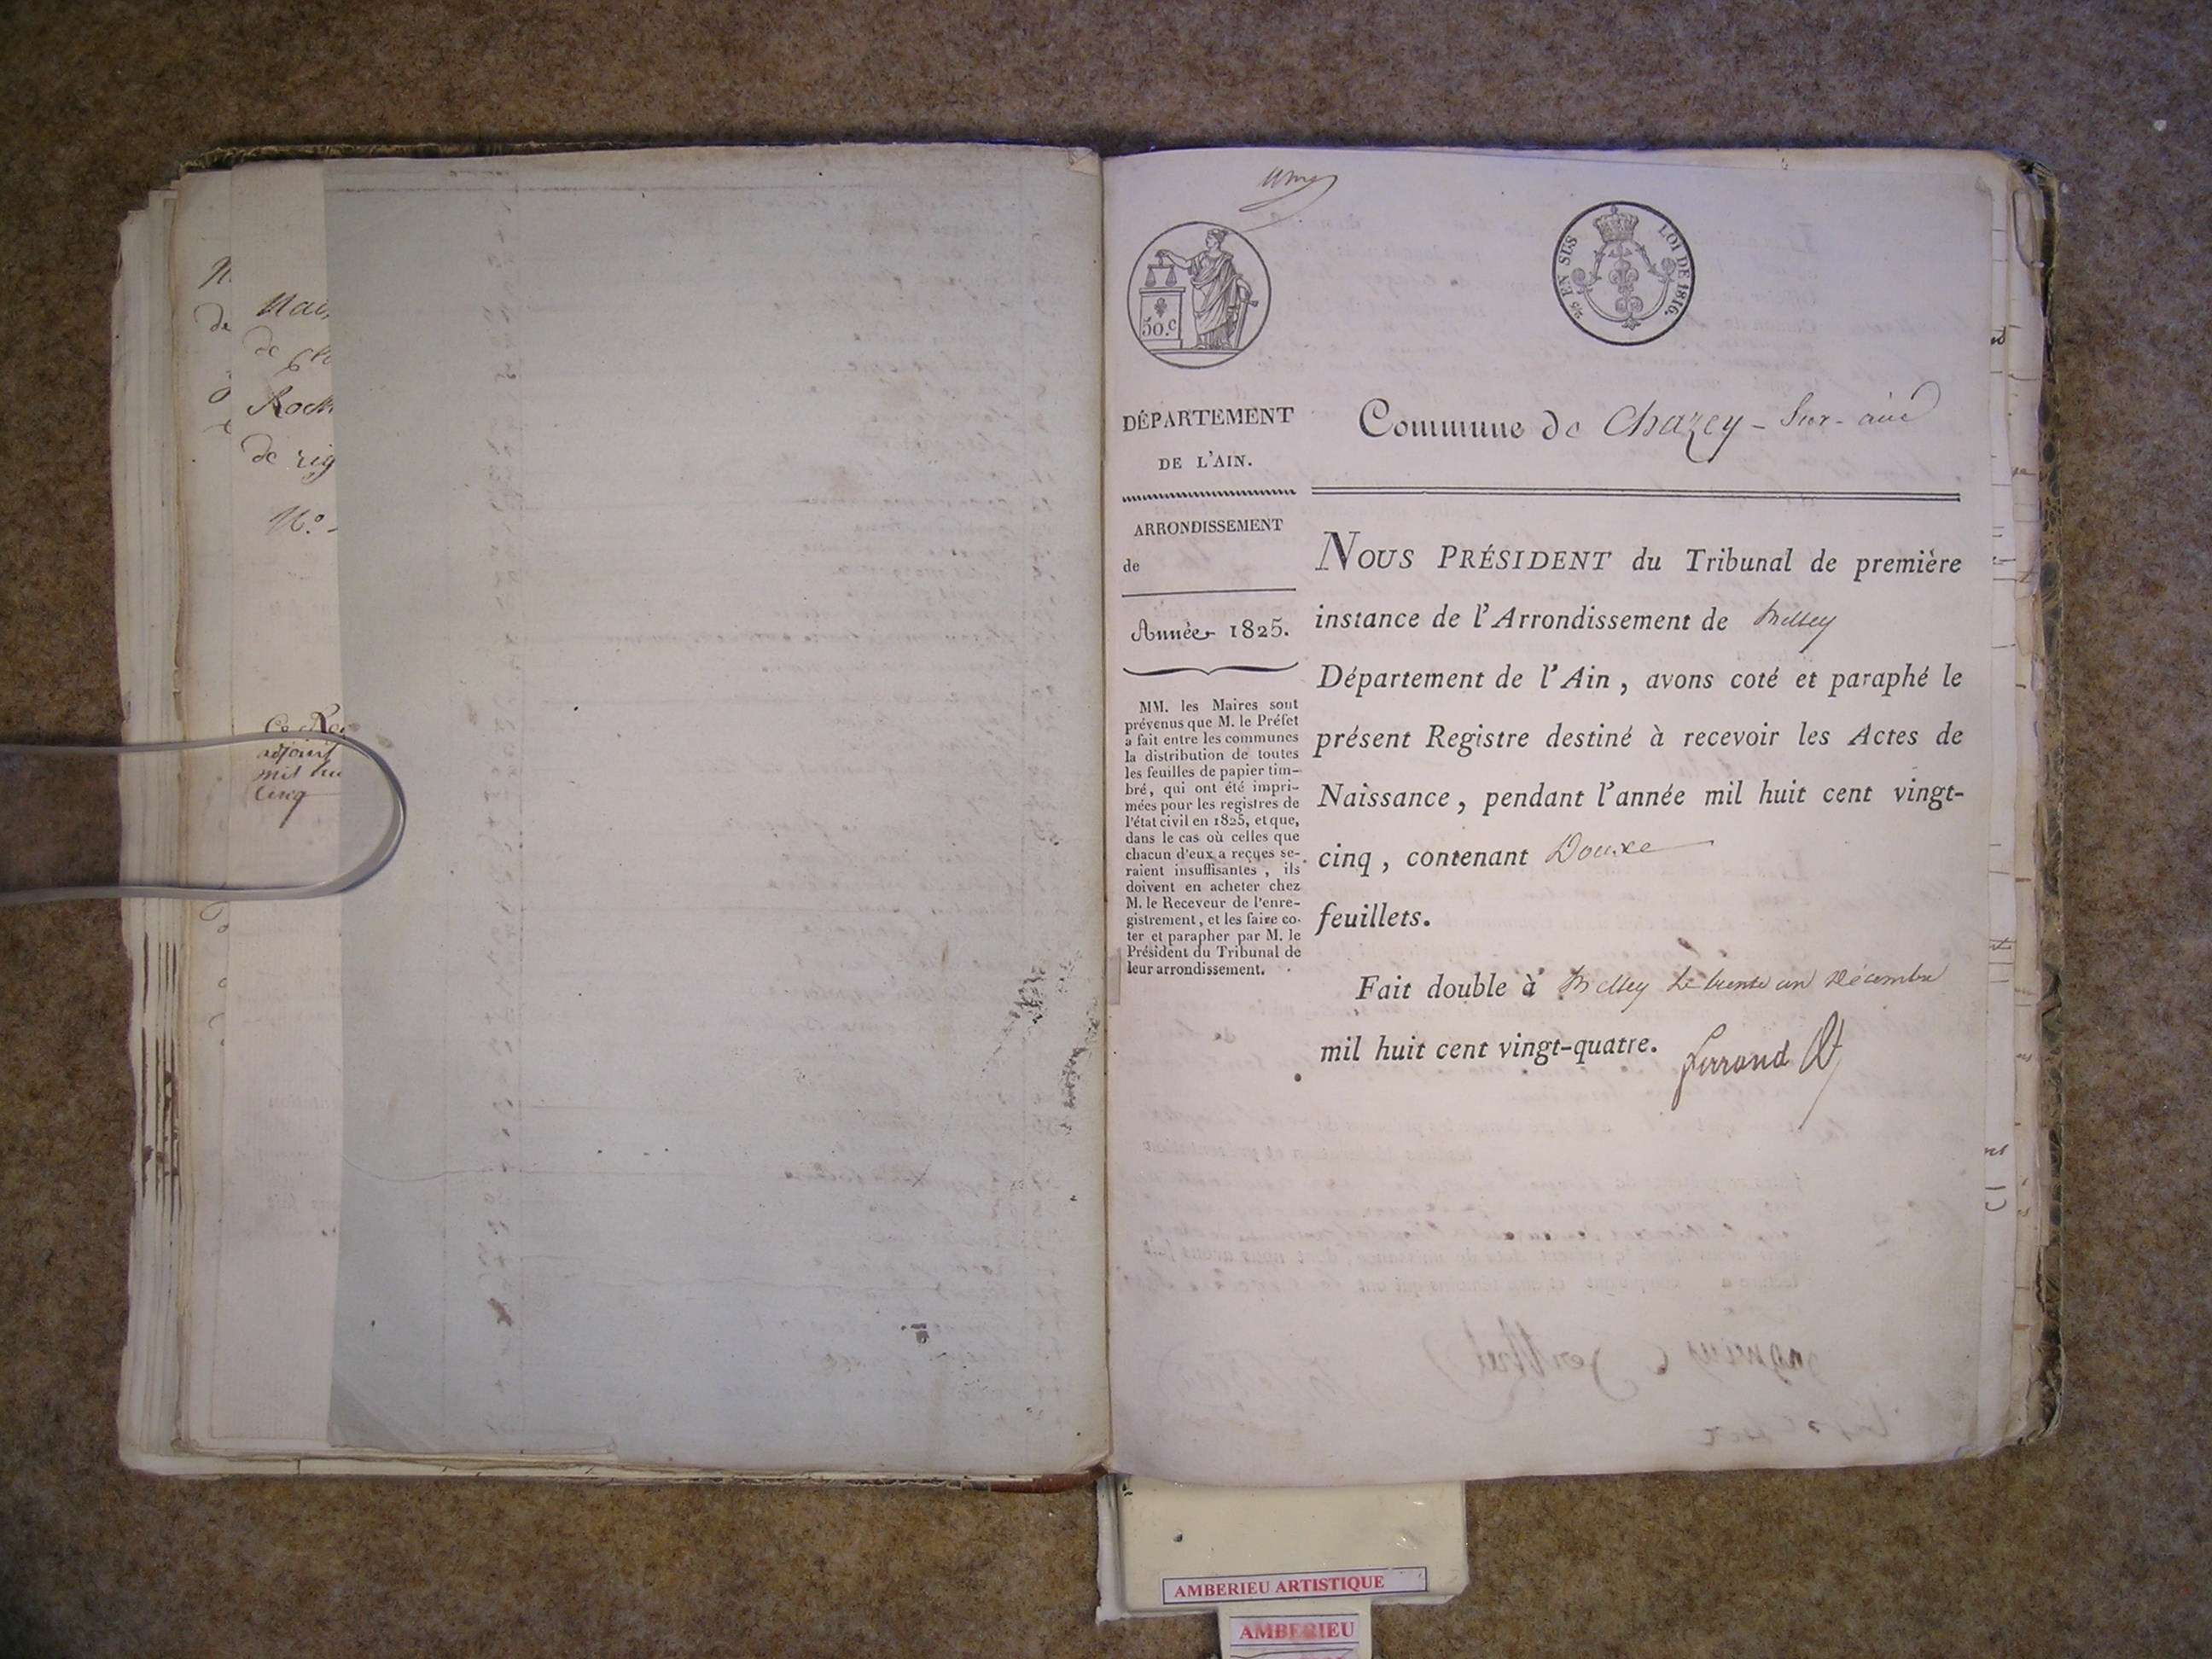 Nai
de
Roch
de rig
N.º
Ce Re
adjoint
mil hui
cinq
une
50.c
EN SUS LOI DE 1816.
DÉPARTEMENT
DE L'AIN.
ARRONDISSEMENT
de
Année 1825.
MM. les Maires sont
prévenus que M. le Préfet
a fait entre les communes
la distribution de toutes
les feuilles de papier tim-
bré, qui ont été impri-
mées pour les registres de
l'état civil en 1825, et que,
dans le cas où celles que
chacun d'eux a reçues se-
raient insuffisantes, ils
doivent en acheter chez
M. le Receveur de l'enre-
gistrement, et les faire co-
ter et parapher par M. le
Président du Tribunal de
leur arrondissement.
Commune de Chazey-Sur-ain
NOUS PRÉSIDENT du Tribunal de première
instance de l'Arrondissement de Belley
Département de l'Ain, avons coté et paraphé le
présent Registre destiné à recevoir les Actes de
Naissance, pendant l'année mil huit cent vingt-
cinq, contenant Douze
feuillets.
Fait double à Belley le trente un décembre
mil huit cent vingt-quatre.
Ferrand
AMBERIEU ARTISTIQUE
AMBERIEU